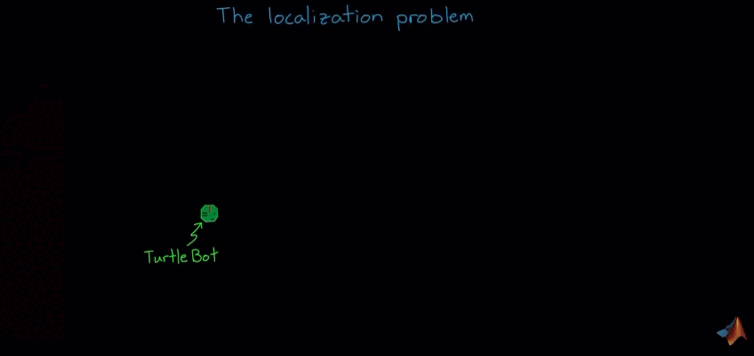 The localization problem
TurtleBot